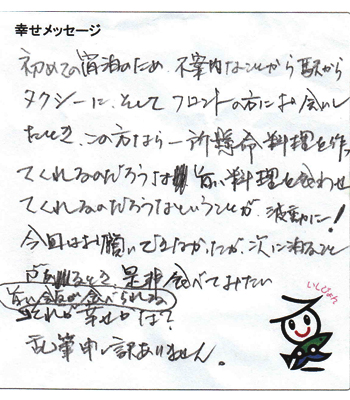 幸せメッセージ
初めての宿泊のため、不案内なことから駅から
タクシーに、そして フロントの方にお会いし
たとき、この方なら一所懸命料理を作っ
てくれるのだろうな 旨い料理を食わせ
てくれるのだろうなということが、波動に!
今回はお願いできなかったが、次に泊ること
があるとき、是非食べてみたい
旨い食事が食べられる
それが幸せかな?
乱筆申し訳ありません。
いしじょん